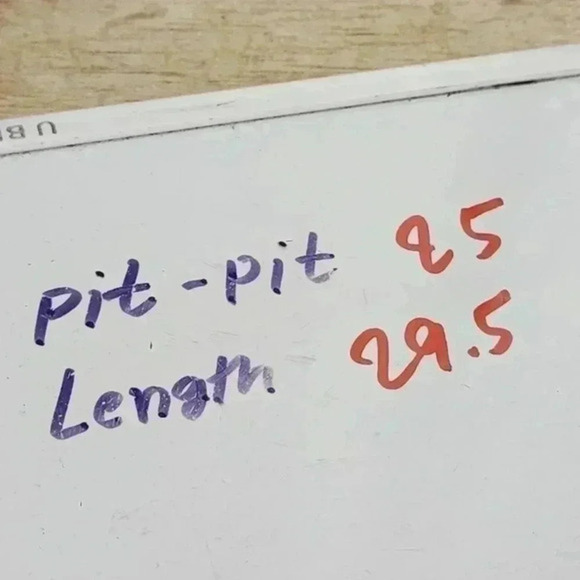 Pit - Pit 25
Length 29.5